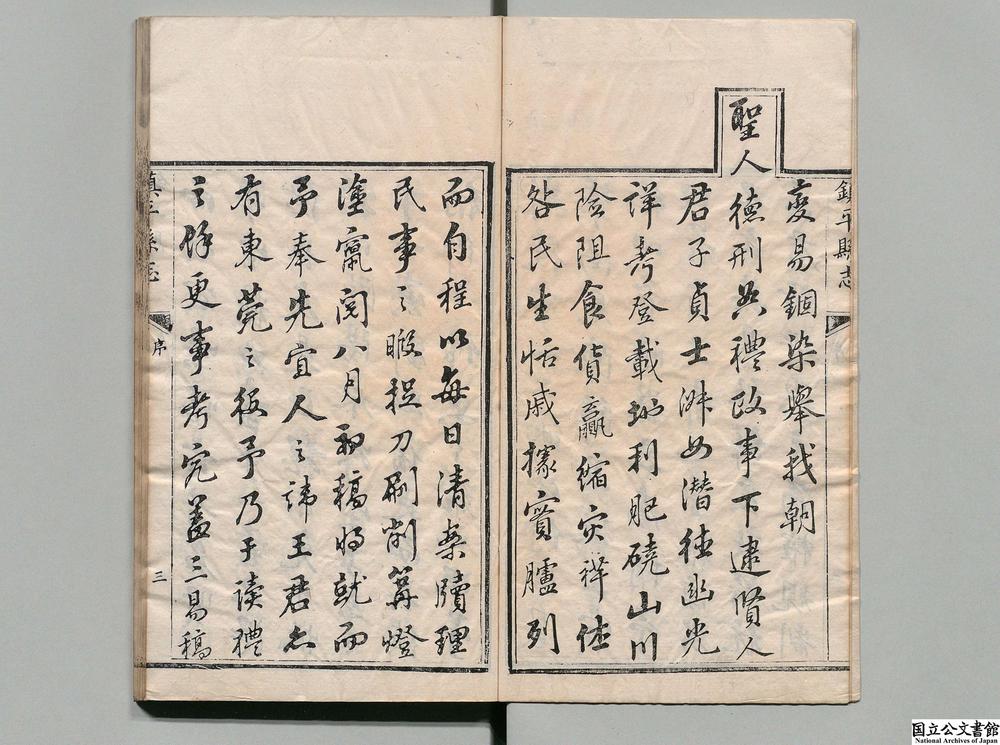 鎮平縣志
變易錮染舉我朝
聖人德刑與禮政事下逮賢人
君子貞士淑女潛德幽光
詳考登載地利肥磽山川
險阻食貨贏縮灾祥休
咎民生恬戚據實臚列
而自程以每日清案牘理
民事之暇捉刀刷削篝燈
濡甯閱八月初稿將就而
予奉先宜人之諱王君亦
有東莞之役予乃于讀禮
之餘更事考究蓋三易稿
鎮平縣志
序
三
国立公文書館
National Archives of Japan